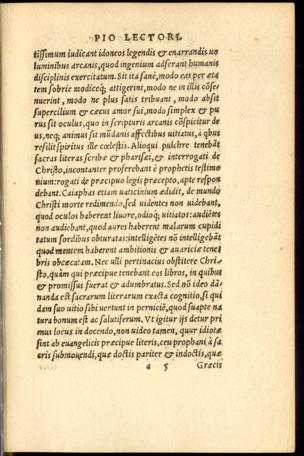 PIO LECTORI.
tissimum iudicant idoneos legendis & enarrandis uo
luminibus arcanis, quod ingenium adferant humanis
disciplinis exercitatum. Sit ita sanè, modo eas per æta
tem sobrie modiceq; attigerint, modo ne in illis cōse/
nuerint, modo ne plus satis tribuant, modo absit
supercilium & cæcus amor sui, modo simplex & pu
rus sit oculus, quo in scripturis arcanis cōspicitur de
us, neq; animus sit mūdanis affectibus uitiatus, à qbus
resilit spiritus ille cœlestis. Alioqui pulchre tenebāt
sacras literas scribæ & pharisæi, & interrogati de
Christo, incontanter proferebant è prophetis testimo
nium: rogati de præcipuo legis præcepto, apte respon
debant. Caiaphas etiam uaticinium ædidit, de mundo
Christi morte redimendo, sed uidentes non uidebant,
quod oculos haberent liuore, odioq; uitiatos: audiētes
non audiebant, quod aures haberent malarum cupidi
tatum sordibus obturatas: intelligētes nō intelligebāt
quod mentem haberent ambitionis & auariciæ tene
bris obcæcatam. Nec ulli pertinacius obstitere Chri/
sto, quàm qui præcipue tenebant eos libros, in quibus
& promissus fuerat & adumbratus. Sed nō ideo dā/
nanda est sacrarum literarum exacta cognitio, si qui
dam suo uitio sibi uertunt in perniciē, quod suapte na
tura bonum est ac salutiferum. Vt igitur ijs detur pri
mus locus in docendo, non uideo tamen, quur idiotæ
sint ab euangelicis præcipue literis, ceu prophani à sa
cris submouendi, quæ doctis pariter & indoctis, quæ
a 5 Græcis